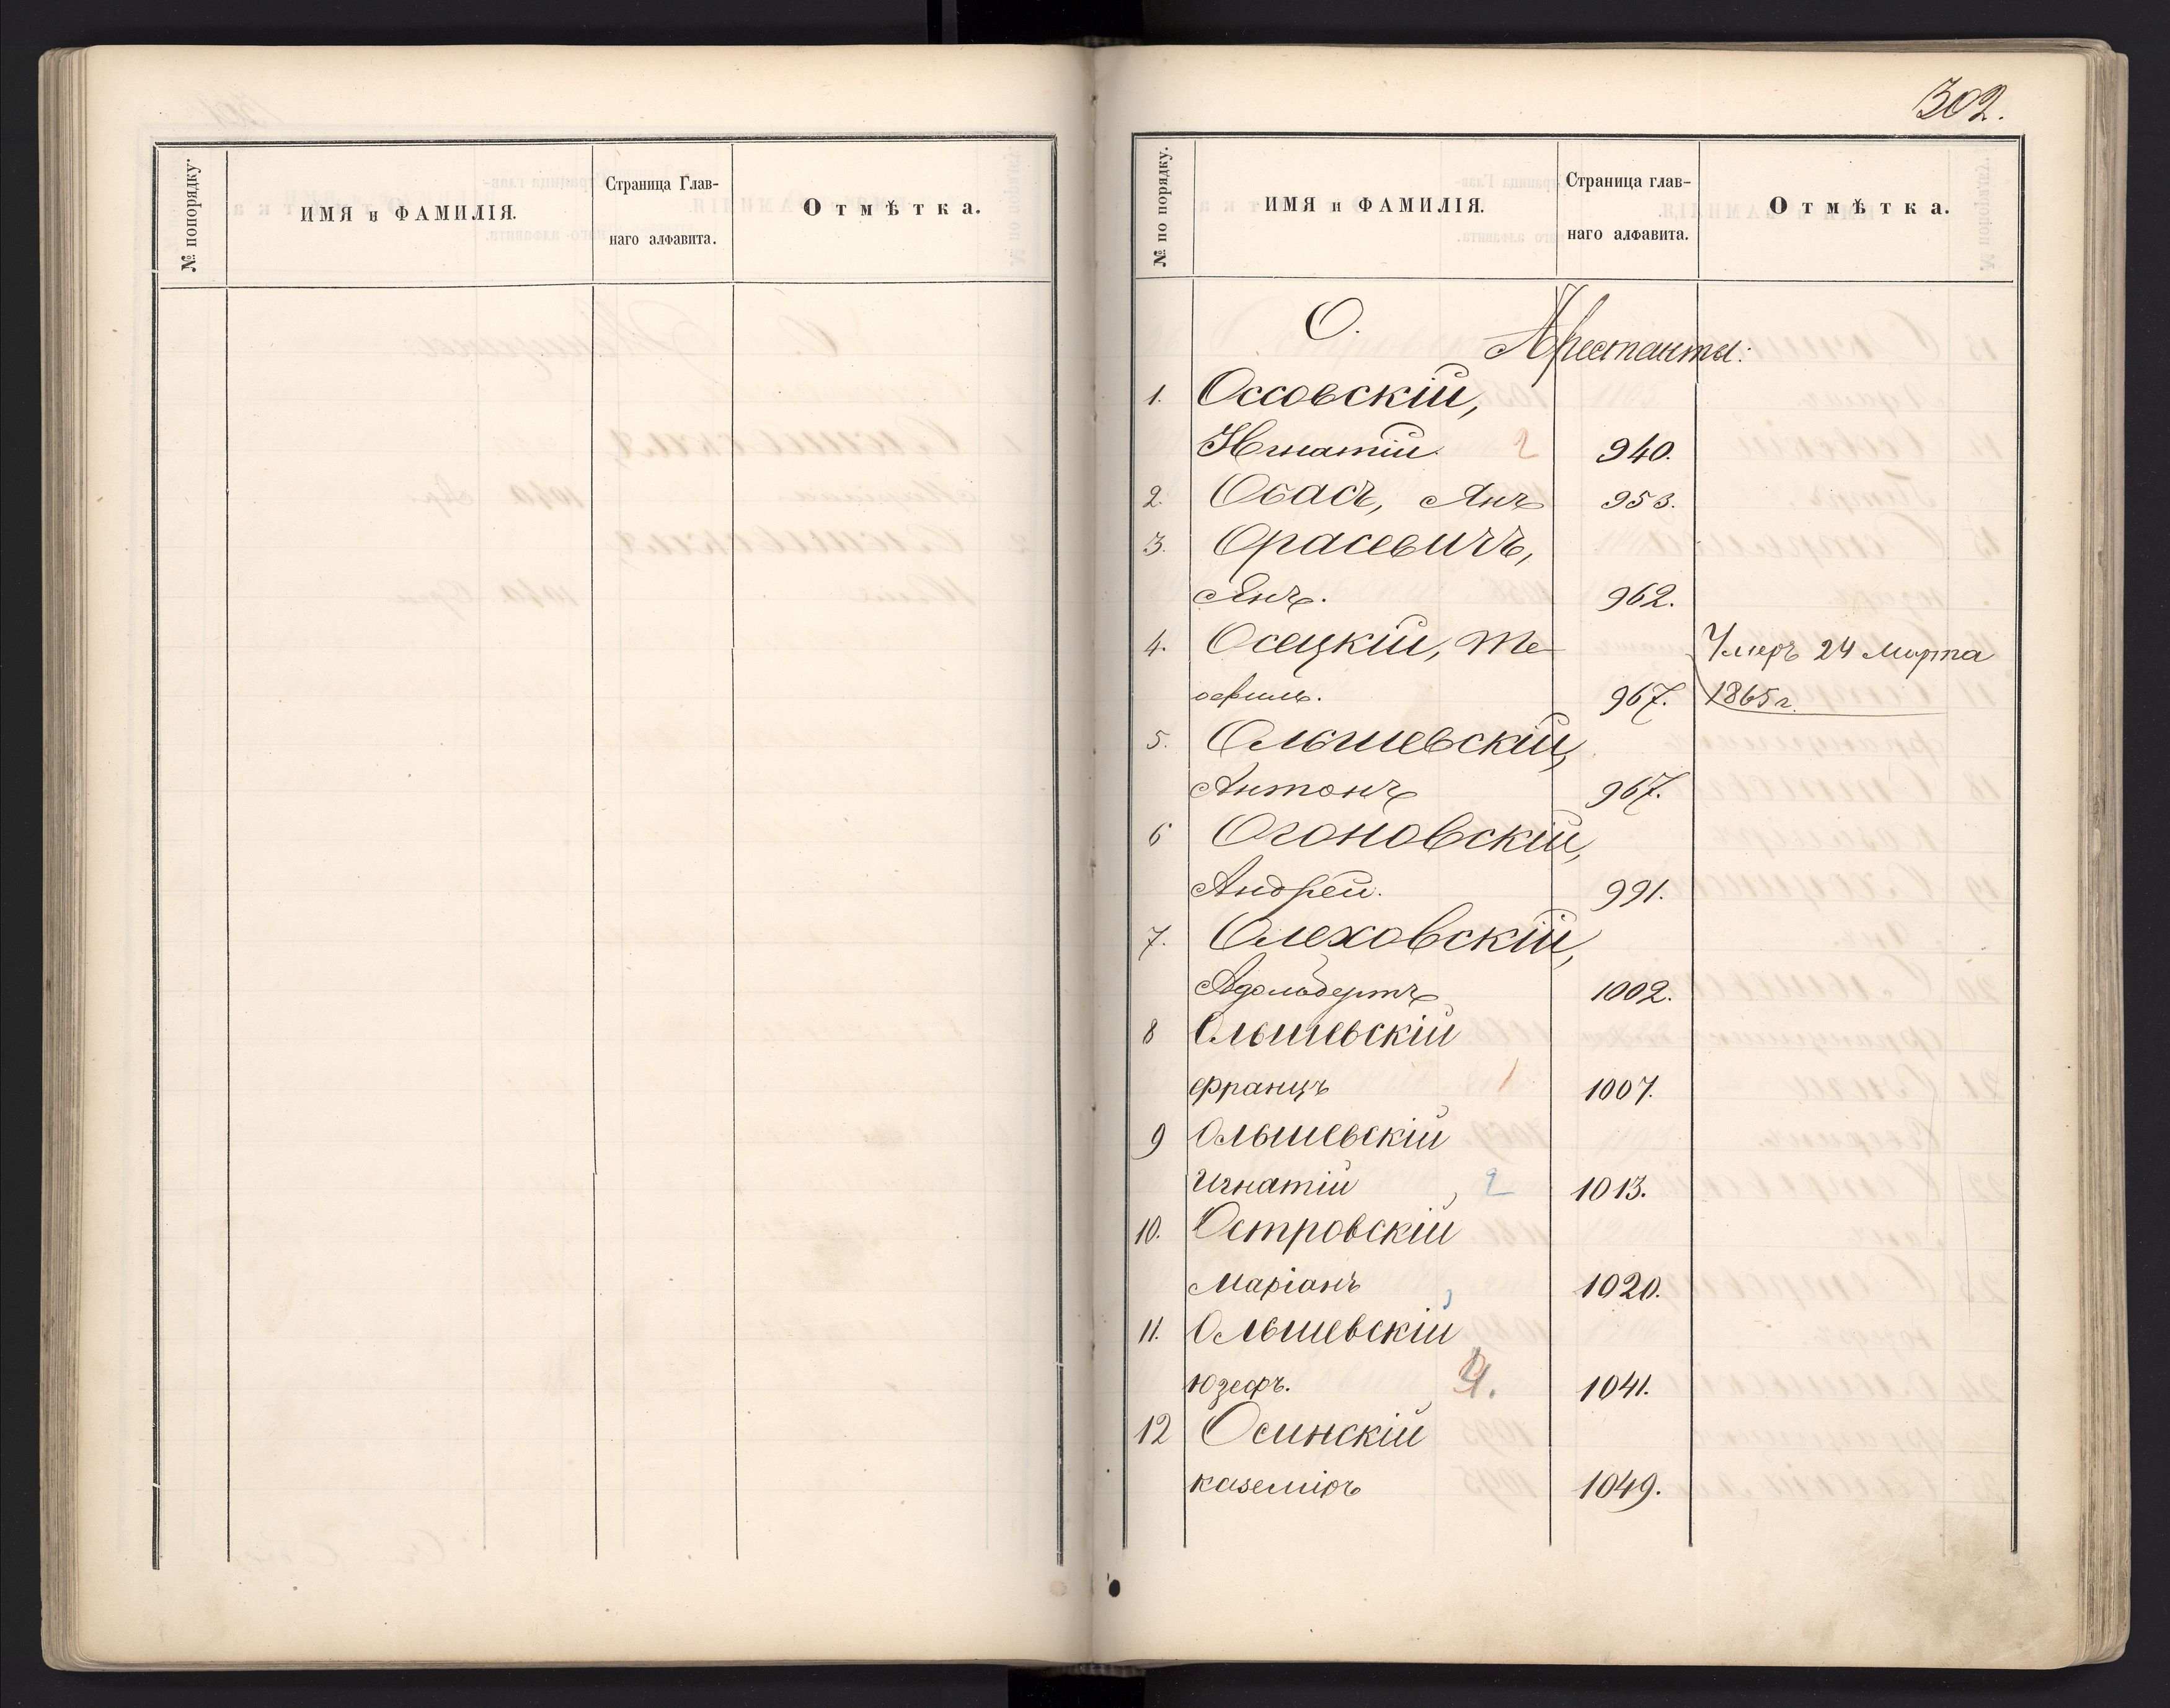 № попорядку.
ИМЯ и ФАМИЛІЯ.
Страница Глав-
наго алфавита.
Отмѣтка.
302.
№ по порядку.
ИМЯ и ФАМИЛІЯ.
Страница глав-
наго алфавита.
Отмѣтка.
О.
Арестанты:
1. Оссовскій,
Игнатій 2 940.
2. Обасъ, Янъ 953.
3. Орасевичъ,
Янъ. 962.
4. Осецкій, Те- Умеръ 24 Марта
офиль. 967. 1865 г.
5. Ольшевскій,
Антонъ 967.
6 Огоновскій,
Андрей. 991.
7. Олеховскій,
Адольбертъ 1002.
8 Ольшевскій
Францъ 1 1007.
9 Ольшевскій
Игнатій 2 1013.
10. Островскій
Маріанъ 1020.
11. Ольшевскій
Юзефъ. 1041.
12 Осинскій
Каземіръ 1049.